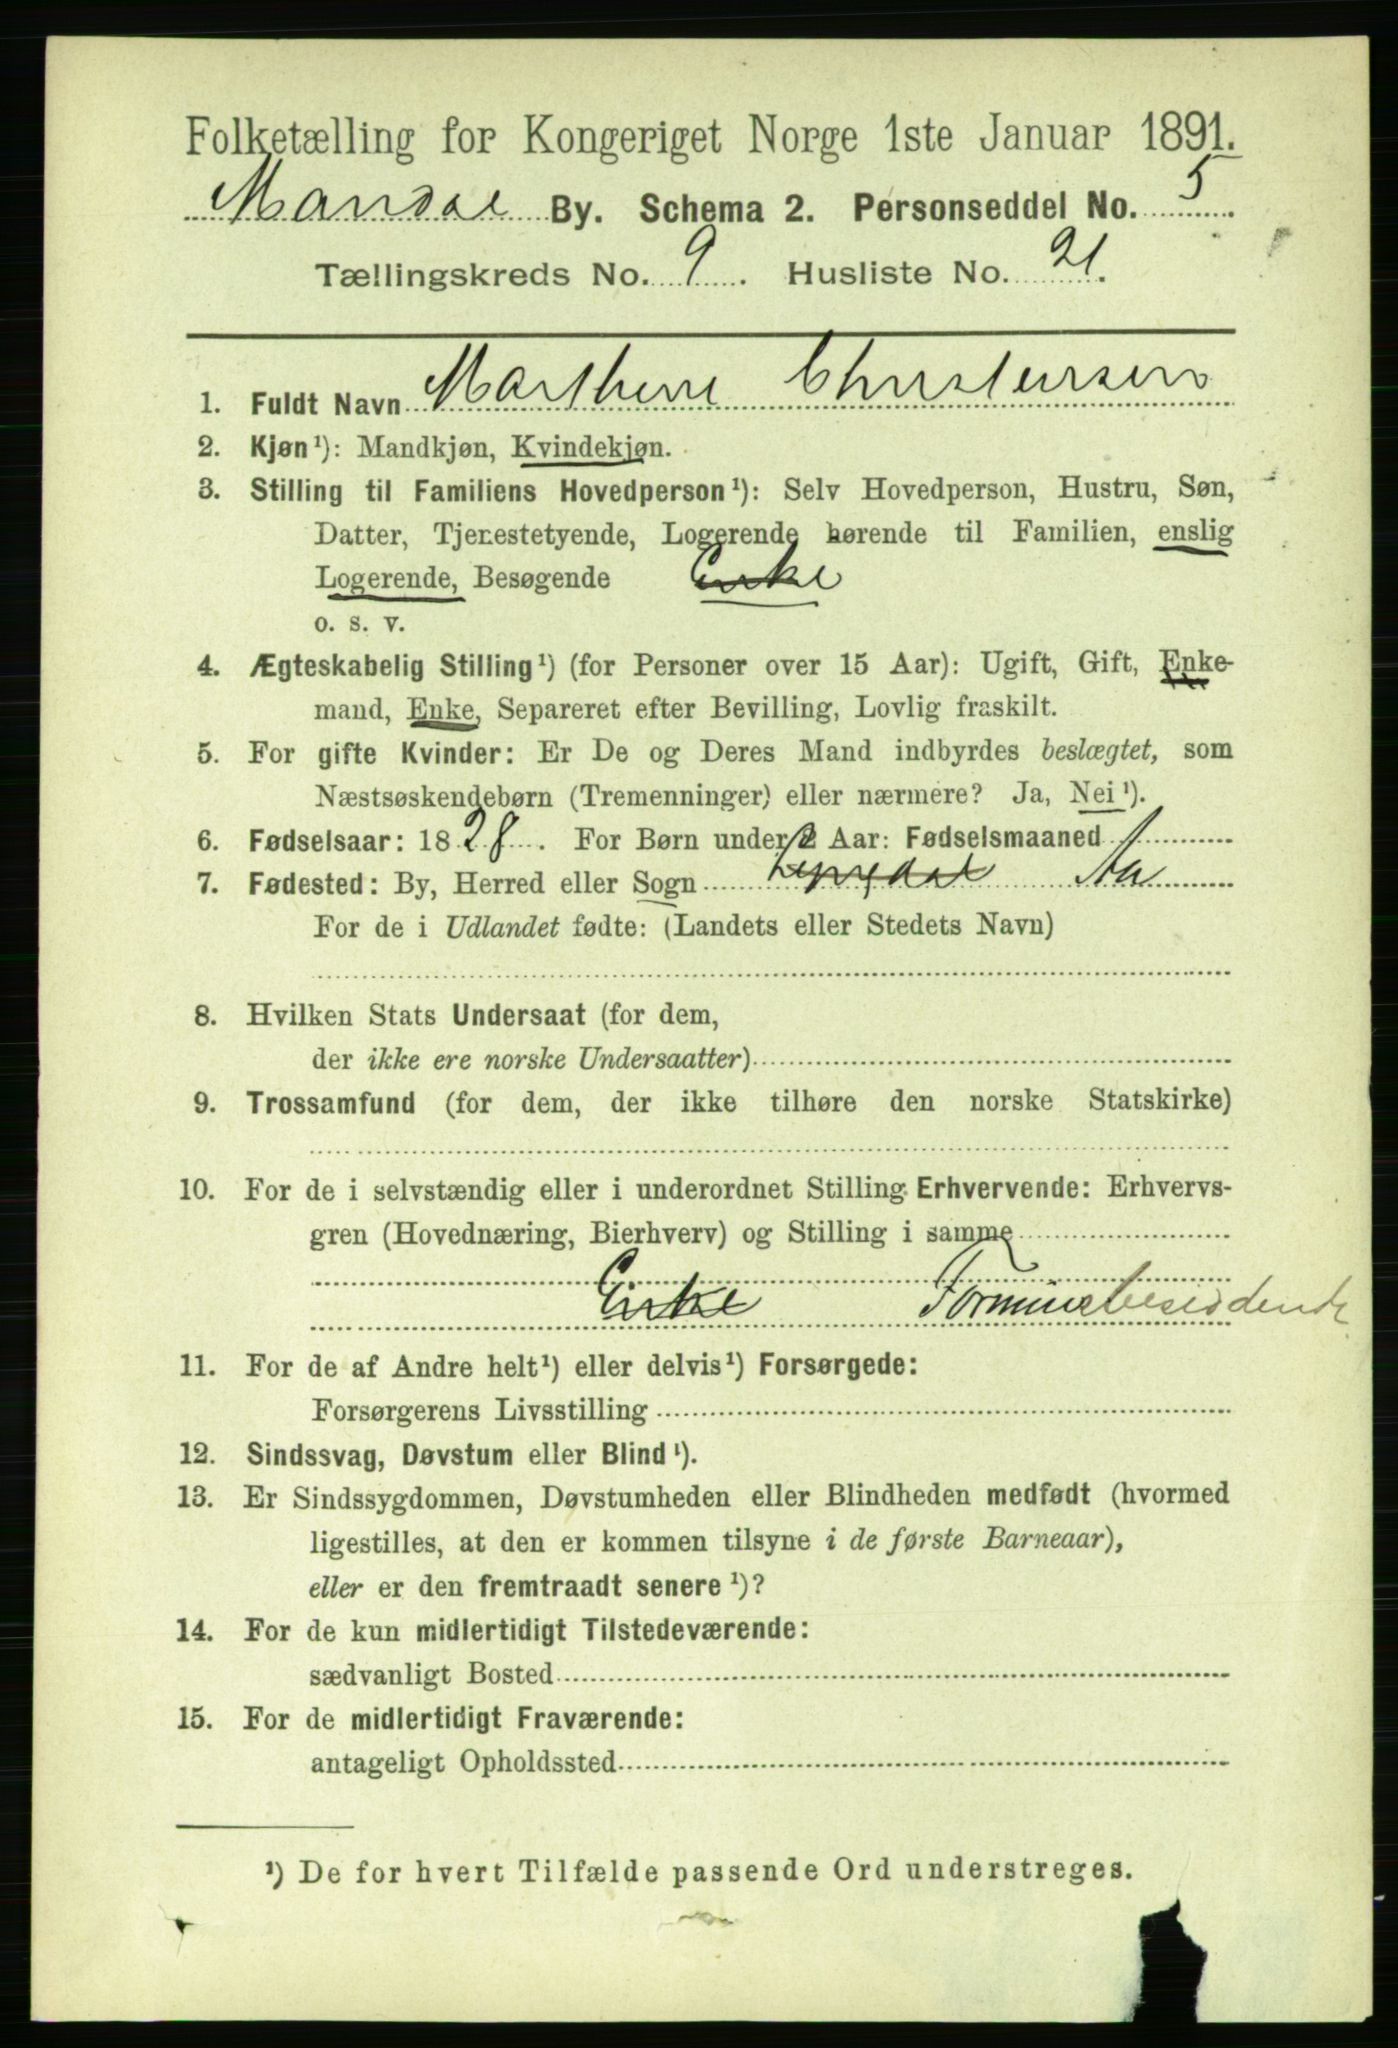 Folketælling for Kongeriget Norge 1ste Januar 1891.
Mandal By. Schema 2. Personseddel No. 5
Tællingskreds No. 9. Husliste No. 21.
1. Fuldt Navn Marthine Christensen
2. Kjøn¹): Mandkjøn, Kvindekjøn.
3. Stilling til Familiens Hovedperson¹): Selv Hovedperson, Hustru, Søn,
Datter, Tjenestetyende, Logerende hørende til Familien, enslig
Logerende, Besøgende Enke
o. s. v.
4. Ægteskabelig Stilling¹) (for Personer over 15 Aar): Ugift, Gift, Enke-
mand, Enke, Separeret efter Bevilling, Lovlig fraskilt.
5. For gifte Kvinder: Er De og Deres Mand indbyrdes beslægtet, som
Næstsøskendebørn (Tremenninger) eller nærmere? Ja, Nei¹).
6. Fødselsaar: 1828. For Børn under 2 Aar: Fødselsmaaned
7. Fødested: By, Herred eller Sogn Aa
For de i Udlandet fødte: (Landets eller Stedets Navn)
8. Hvilken Stats Undersaat (for dem,
der ikke ere norske Undersaatter)
9. Trossamfund (for dem, der ikke tilhøre den norske Statskirke)
10. For de i selvstændig eller i underordnet Stilling Erhvervende: Erhvervs-
gren (Hovednæring, Bierhverv) og Stilling i samme
Enke Formuebesiddende
11. For de af Andre helt¹) eller delvis¹) Forsørgede:
Forsørgerens Livsstilling
12. Sindssvag, Døvstum eller Blind¹).
13. Er Sindssygdommen, Døvstumheden eller Blindheden medfødt (hvormed
ligestilles, at den er kommen tilsyne i de første Barneaar),
eller er den fremtraadt senere¹)?
14. For de kun midlertidigt Tilstedeværende:
sædvanligt Bosted
15. For de midlertidigt Fraværende:
antageligt Opholdssted
¹) De for hvert Tilfælde passende Ord understreges.